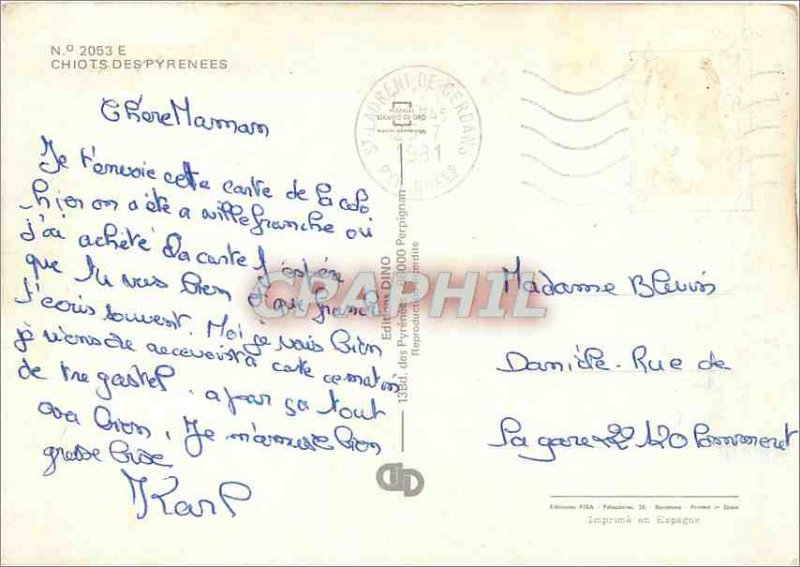 N.º 2053 E
CHIOTS DES PYRENEES
Chère Maman
Je t'envoie cette carte de la colo
hier on a été a villefranche ou
j'ai achété la carte j'espére
que tu vas bien et que franck
t'écris souvent. Moi je vais bien
je viens de recevoir ta carte ce matin
de tregastel. a par sa tout
va bien, Je m'amuse bien
grosse bise
Karl
ST LAURENT-DE-CERDANS
1981
Editions DINO
13 Bd. des Pyrénées 66000 Perpignan
Reproduction interdite
CPAPHIL
Madame Blevin
Danièle. Rue de
la gare 22120 Pommeret
Ediciones FISA - Palaudarias, 26 - Barcelona - Printed in Spain
Imprimé en Espagne